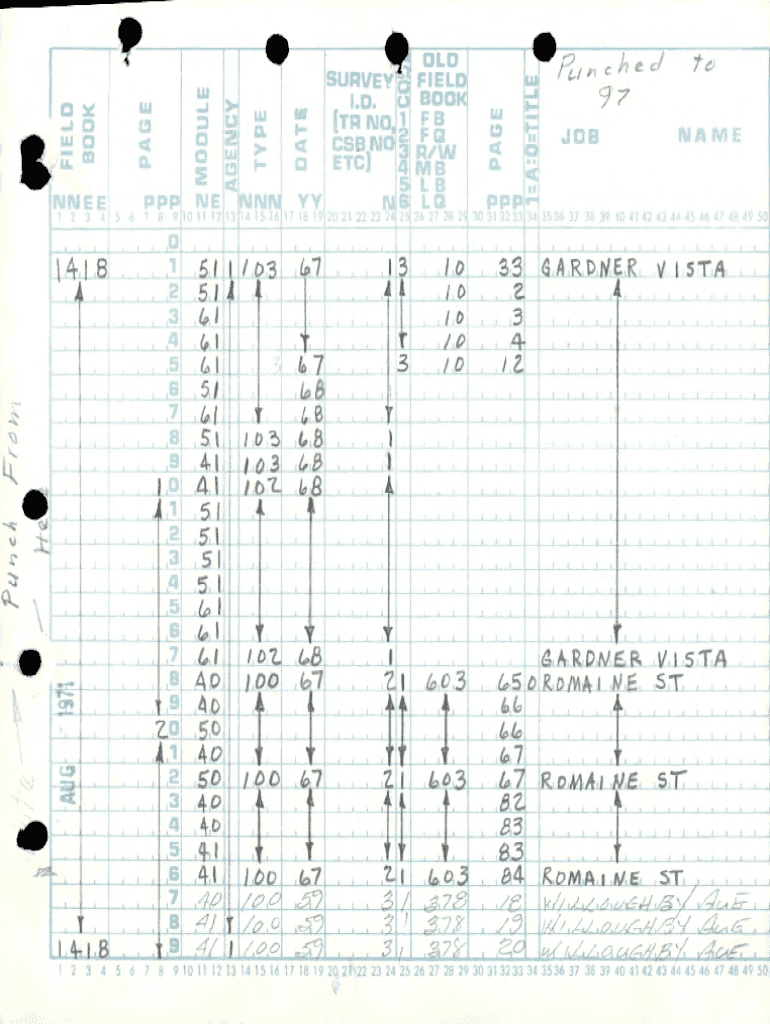 Punched to
97
FIELD BOOK PAGE MODULE AGENCY TYPE DATE SURVEY I.D. (TR NO, CSB NO ETC) OLD FIELD BOOK 1 FB 2 FQ 3 R/W 4 MB 5 LB 6 LQ PAGE 1=A:0=TITLE JOB NAME
NNEE PPP NE NNN YY N PPP
1 2 3 4 5 6 7 8 9 10 11 12 13 14 15 16 17 18 19 20 21 22 23 24 25 26 27 28 29 30 31 32 33 34 35 36 37 38 39 40 41 42 43 44 45 46 47 48 49 50
0
1418 1 51 1 103 67 1 3 10 33 GARDNER VISTA
2 51 10 2
3 61 10 3
4 61 10 4
5 61 67 3 10 12
6 51 68
7 61 68
8 51 103 68 1
9 41 103 68 1
10 41 102 68
1 51
2 51
3 51
4 51
5 61
6 61
7 61 102 68 1 GARDNER VISTA
8 40 100 67 2 1 603 65 0 ROMAINE ST
9 40 66
20 50 66
1 40 67
2 50 100 67 2 1 603 67 ROMAINE ST
3 40 82
4 40 83
5 41 83
6 41 100 67 2 1 603 84 ROMAINE ST
7 40 100 59 3 1 378 18 WILLOUGHBY AVE
8 41 100 59 3 1 378 19 WILLOUGHBY AVE
1418 9 41 1 100 59 3 1 378 20 WILLOUGHBY AVE
1 2 3 4 5 6 7 8 9 10 11 12 13 14 15 16 17 18 19 20 21 22 23 24 25 26 27 28 29 30 31 32 33 34 35 36 37 38 39 40 41 42 43 44 45 46 47 48 49 50
Punch From
AUG 1971